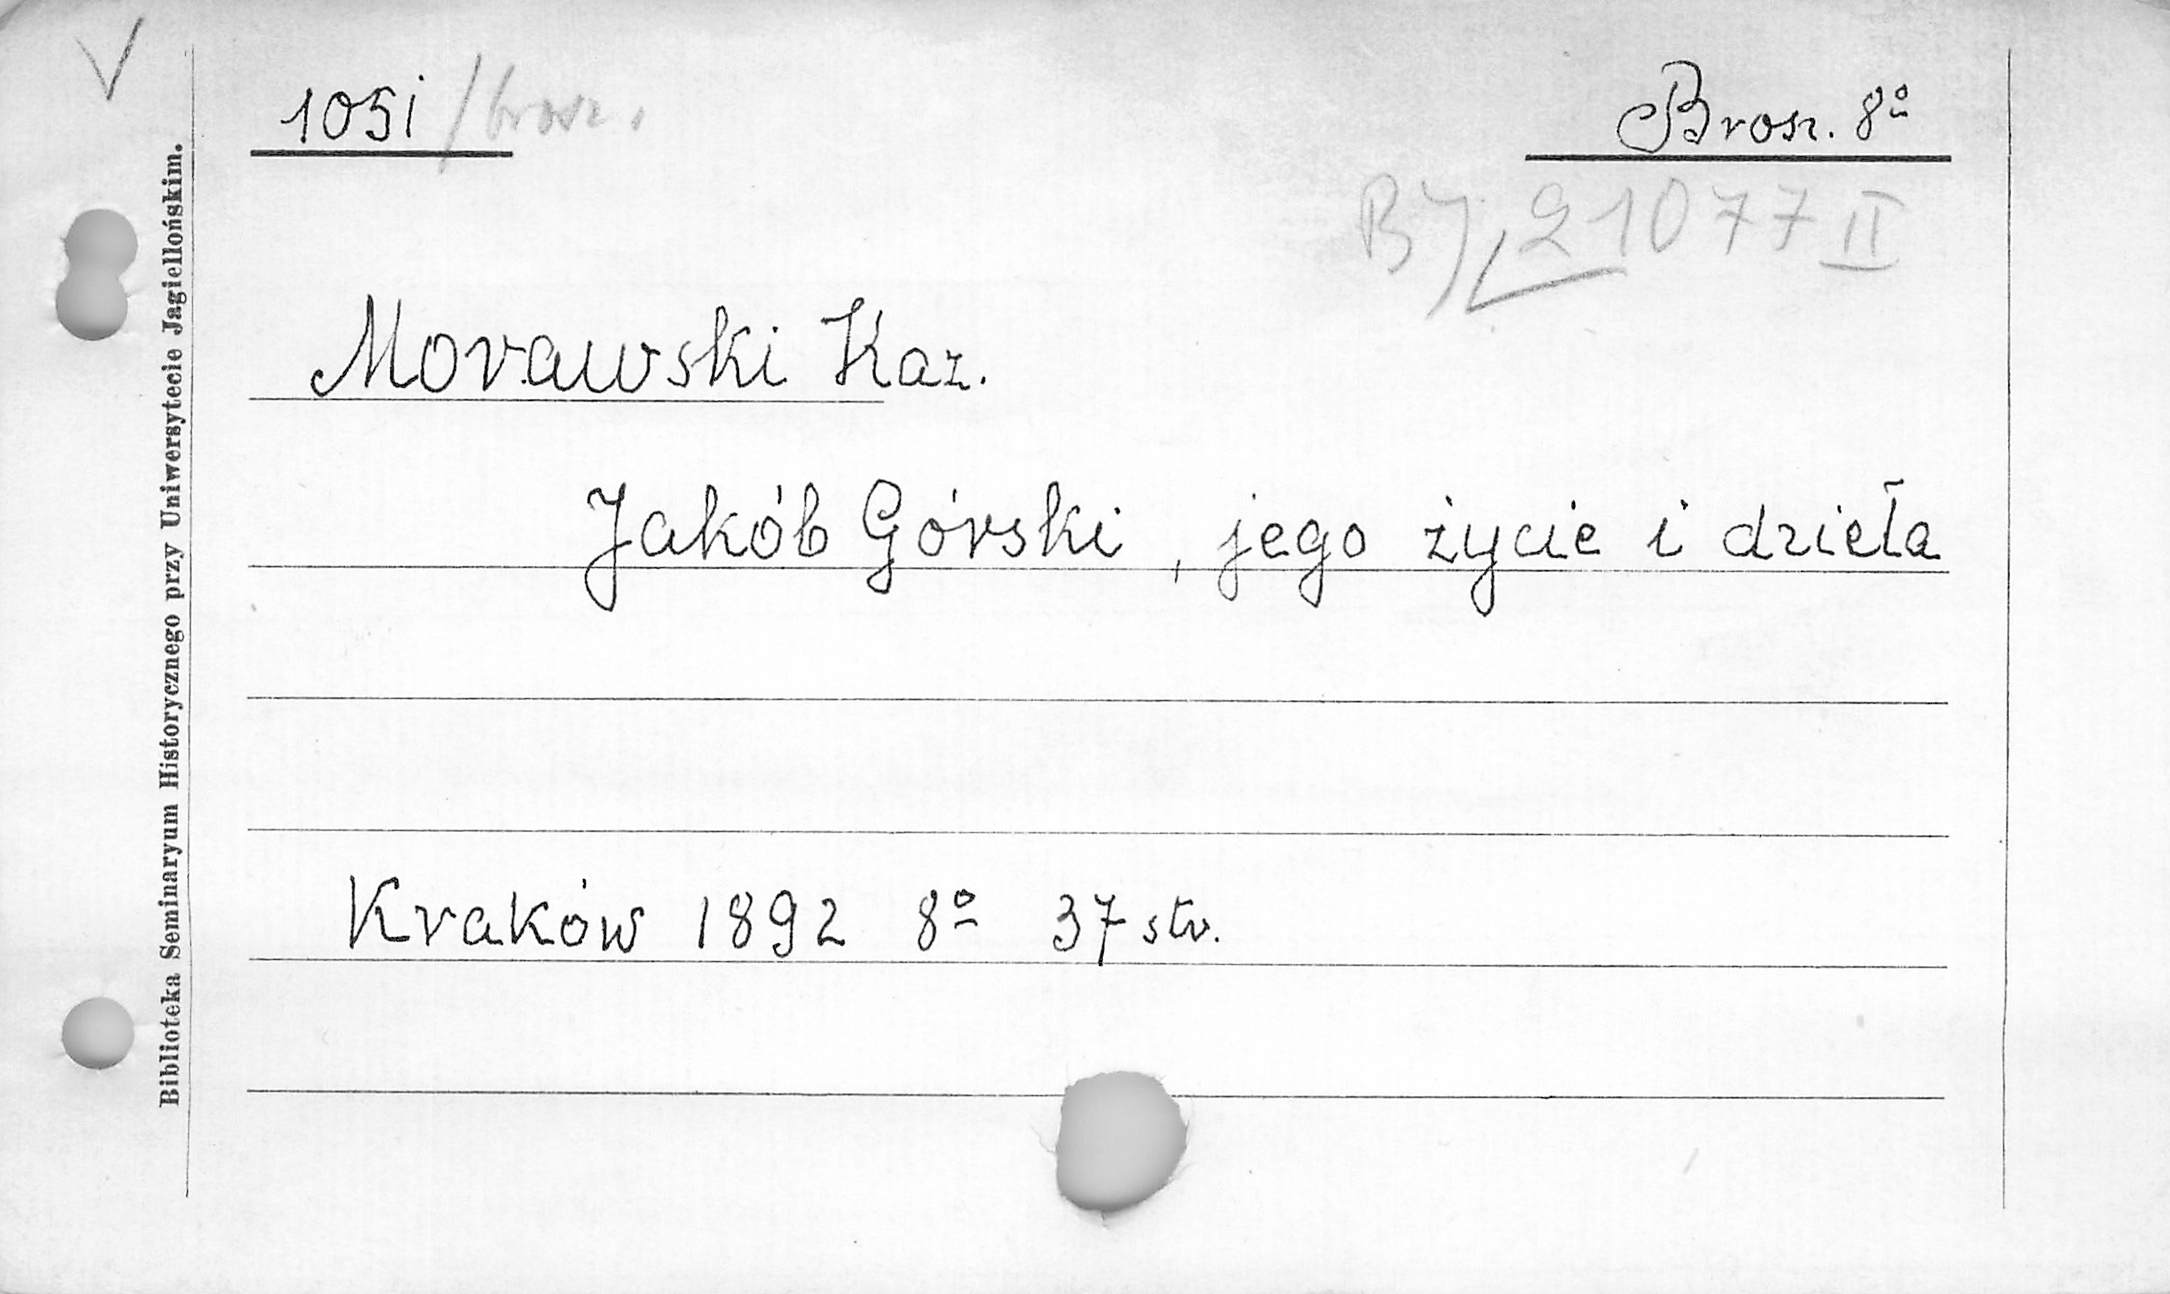 1051 /brosz. Brosz. 8º
BJ 21077 II
Morawski Kaz.
Jakób Górski, jego życie i dzieła
Kraków 1892 8º 37 str.
Biblioteka Seminaryum Historycznego przy Uniwersytecie Jagiellońskim.